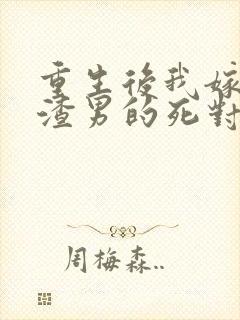 重生後我嫁
渣男的死對
周梅森..